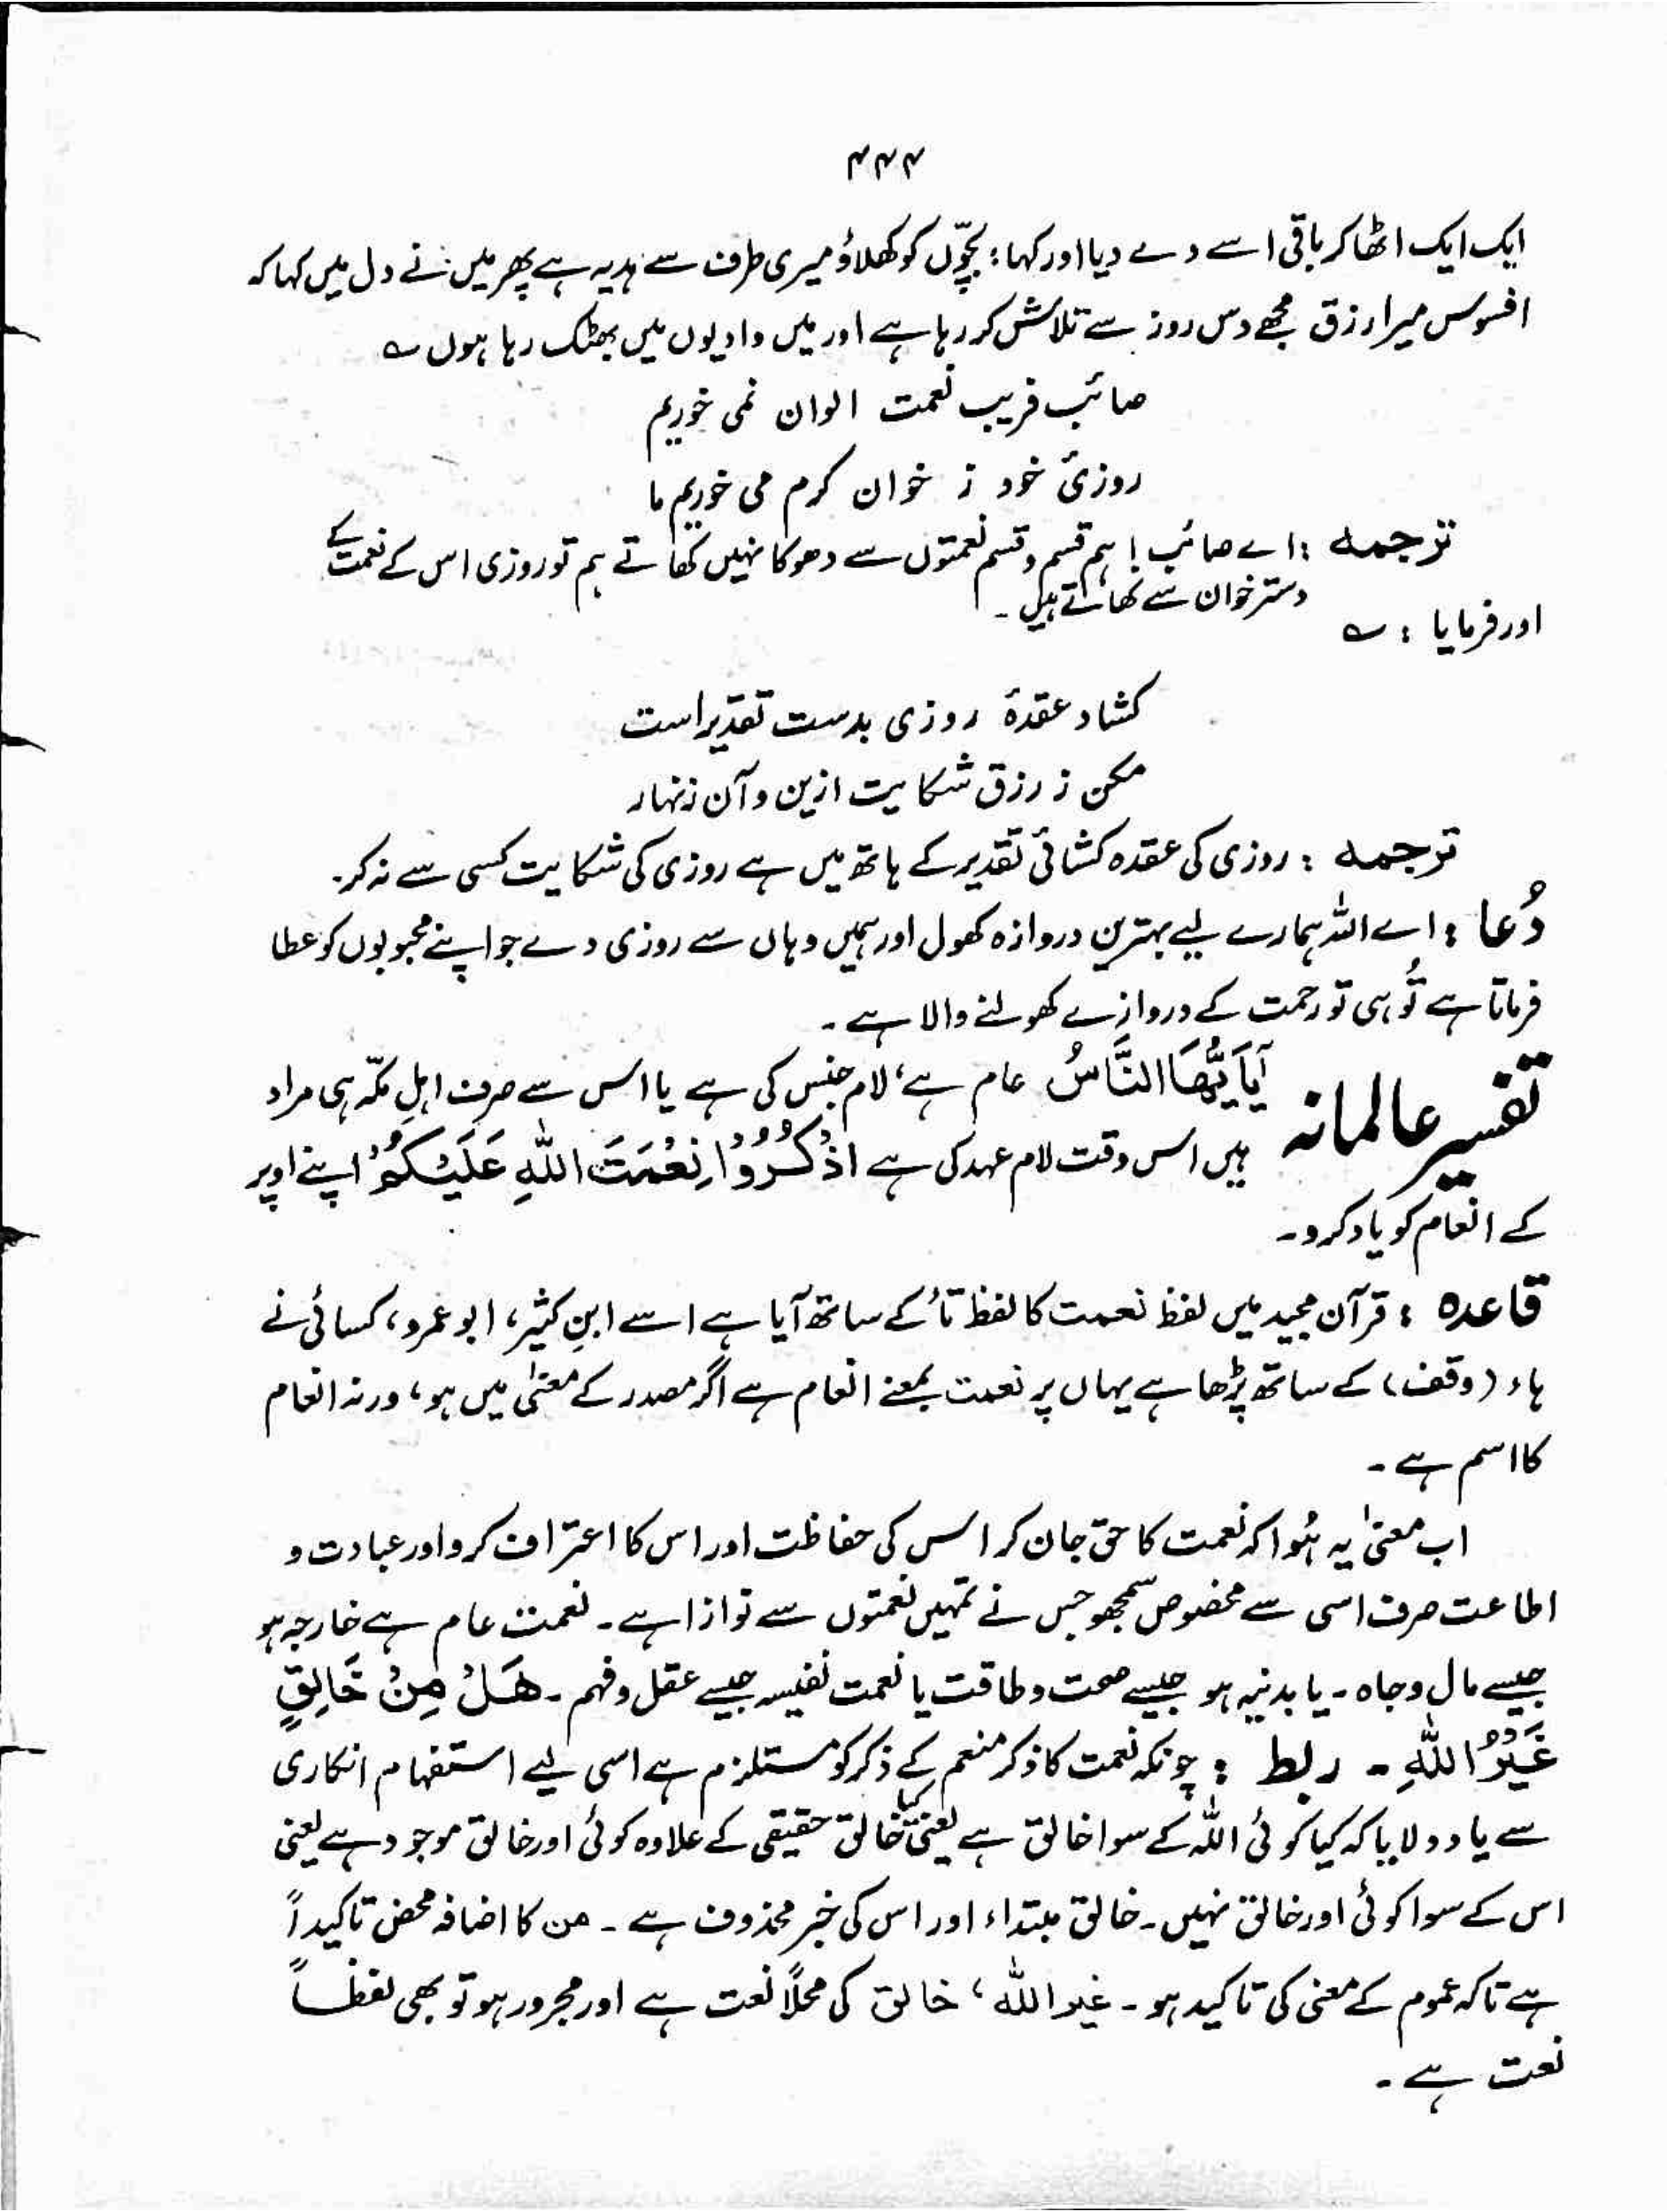 ۴۴۴
ایک ایک اٹھا کر باقی اسے دے دیا اور کہا: بچّوں کو کھلاؤ میری طرف سے ہدیہ ہے پھر میں نے دل میں کہا کہ
افسوس میرا رزق مجھے دس روز سے تلاش کر رہا ہے اور میں وادیوں میں بھٹک رہا ہوں ؎
صائب فریب نعمت الوان نمی خوریم
روزیٔ خود ز خوان کرم می خوریم ما
ترجمہ : اے صائب! ہم قسم و قسم نعمتوں سے دھوکا نہیں کھاتے ہم تو روزی اس کے نعمت کے
دسترخوان سے کھاتے ہیں ۔
اور فرمایا : ؎
کشاد عقدۂ روزی بدست تقدیر است
مکن ز رزق شکایت ازین و آن زنہار
ترجمہ : روزی کی عقدہ کشائی تقدیر کے ہاتھ میں ہے روزی کی شکایت کسی سے نہ کر۔
دُعا : اے اللہ ہمارے لیے بہترین دروازہ کھول اور ہمیں وہاں سے روزی دے جو اپنے محبوبوں کو عطا
فرماتا ہے تُو ہی تو رحمت کے دروازے کھولنے والا ہے ۔
تفسیر عالمانہ یٰٓاَیُّھَا النَّاسُ عام ہے، لام جنس کی ہے یا اس سے صرف اہلِ مکّہ ہی مراد
ہیں اس وقت لام عہد کی ہے اذْكُرُوْا نِعْمَتَ اللّٰهِ عَلَيْكُمْ اپنے اوپر
کے انعام کو یاد کرو ۔
قاعدہ : قرآن مجید میں لفظ نعمت کا لفظ تاُ کے ساتھ آیا ہے اسے ابنِ کثیر، ابو عمرو، کسائی نے
ہاء (وقف) کے ساتھ پڑھا ہے یہاں پر نعمت بمعنے انعام ہے اگر مصدر کے معنیٰ میں ہو، ورنہ انعام
کا اسم ہے ۔
اب معنیٰ یہ ہُوا کہ نعمت کا حق جان کر اس کی حفاظت اور اس کا اعتراف کرو اور عبادت و
اطاعت صرف اسی سے مخصوص سمجھو جس نے تمہیں نعمتوں سے نوازا ہے ۔ نعمت عام ہے خارجہ ہو
جیسے مال و جاہ ۔ یا بدنیہ ہو جیسے صحت و طاقت یا نعمت نفیسہ جیسے عقل و فہم ۔ هَلْ مِنْ خَالِقٍ
غَيْرُ اللّٰهِ ۔ ربط : چونکہ نعمت کا ذکر منعم کے ذکر کو مستلزم ہے اسی لیے استفہام انکاری
سے یاد دلایا کہ کیا کوئی اللّٰہ کے سوا خالق ہے یعنی کیا خالق حقیقی کے علاوہ کوئی اور خالق موجود ہے یعنی
اس کے سوا کوئی اور خالق نہیں ۔ خالق مبتداء اور اس کی خبر محذوف ہے ۔ من کا اضافہ محض تاکیداً
ہے تاکہ عموم کے معنی کی تاکید ہو ۔ غیر اللّٰہ ، خالق کی محلًا نعت ہے اور مجرور ہو تو بھی لفظاً
نعت ہے ۔